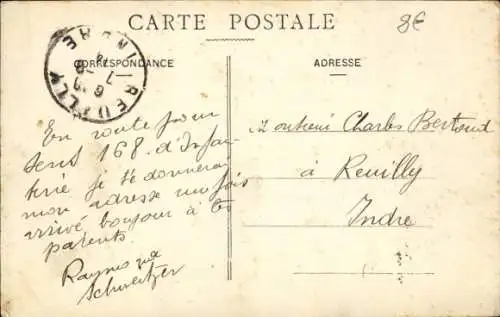 CARTE POSTALE
8€
CORRESPONDANCE
ADRESSE
REUILLY
INDRE
En route pour
Sens 168 d'Infan
terie je te donnerai
mon adresse une fois
arrivé bonjour à tes
parents.
Raymond
Schweitzer
Monsieur Charles Bertrand
à Reuilly
Indre